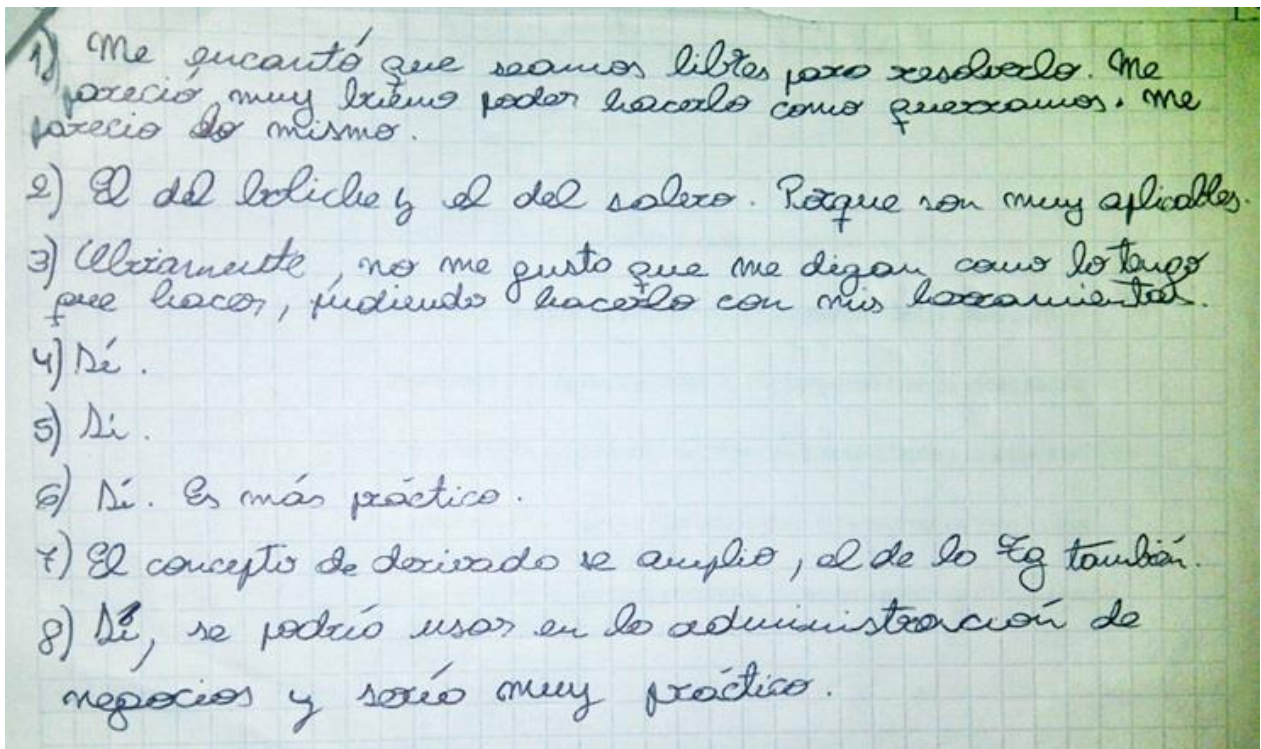 1) Me encantó que seamos libres para resolverlo. Me
pareció muy bueno poder hacerlo como querramos. Me
parecio lo mismo.
2) El del boliche y el del salero. Porque son muy aplicables.
3) Obviamente, no me gusta que me digan como lo tengo
que hacer, pudiendo hacerlo con mis herramientas.
4) Sí.
5) Si.
6) Sí. Es más práctico.
7) El concepto de derivada se amplio, el de la Tg también.
8) Sí, se podría usar en la administración de
negocios y sería muy práctico.